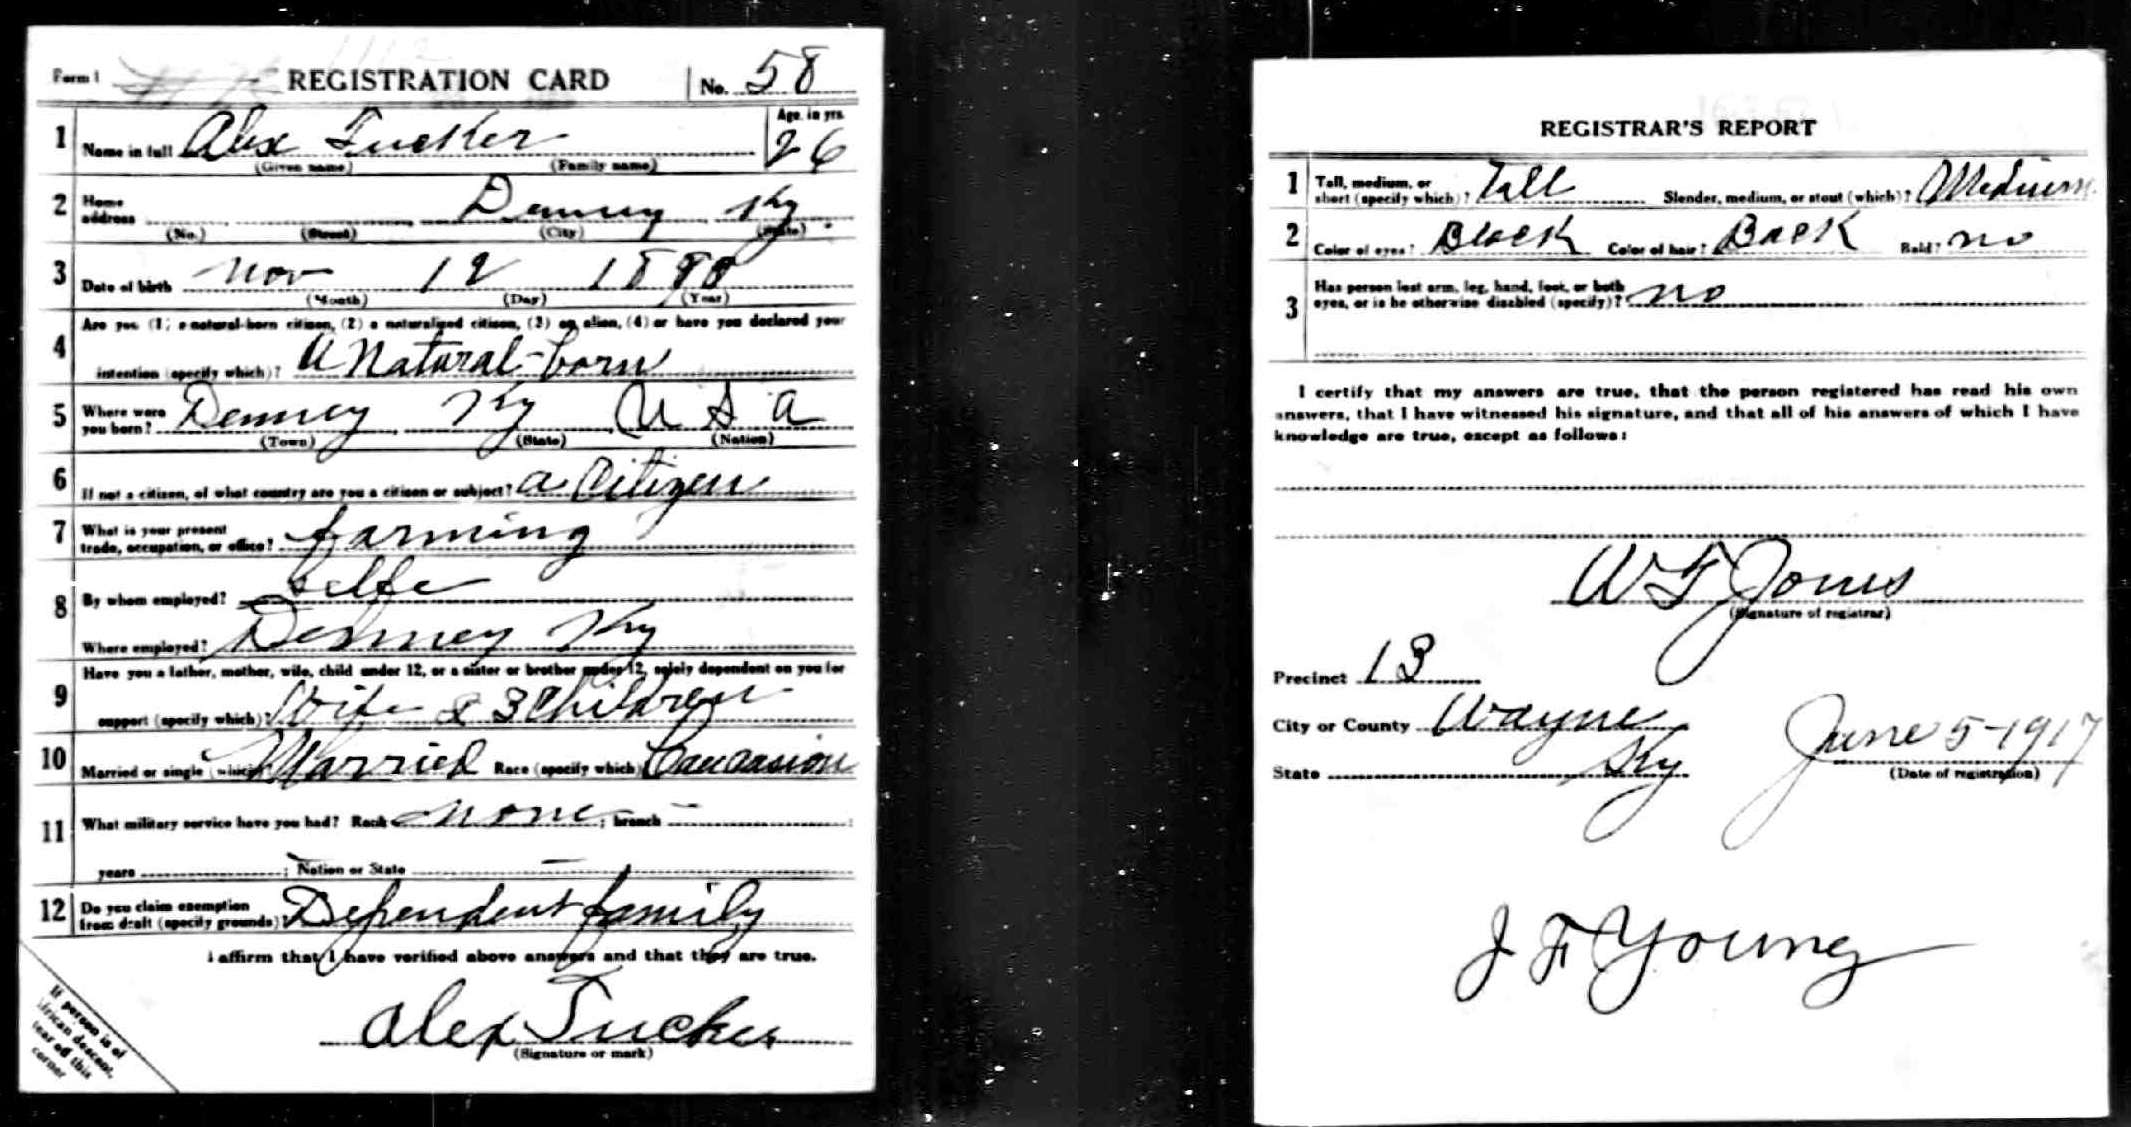 Form 1 REGISTRATION CARD No. 58
1 Name in full Alex Tucker Age, in yrs. 26
(Given name) (Family name)
2 Home address Denney Ky
(No.) (Street) (City) (State)
3 Date of birth Nov 12 1890
(Month) (Day) (Year)
Are you (1) a natural-born citizen, (2) a naturalized citizen, (3) an alien, (4) or have you declared your
4 intention (specify which)? A Natural-born
5 Where were you born? Denney Ky U S A
(Town) (State) (Nation)
6 If not a citizen, of what country are you a citizen or subject? a Citizen
7 What is your present trade, occupation, or office? farming
8 By whom employed? Selfe
Where employed? Denney Ky
Have you a father, mother, wife, child under 12, or a sister or brother under 12, solely dependent on you for
9 support (specify which)? Wife & 3 Children
10 Married or single (which)? Married Race (specify which)? Caucasion
11 What military service have you had? Rank none ; branch — ;
years — ; Nation or State —
12 Do you claim exemption from draft (specify grounds)? Dependent family
I affirm that I have verified above answers and that they are true.
Alex Tucker
(Signature or mark)
If person is of
African descent,
tear off this
corner
REGISTRAR'S REPORT
1 Tall, medium, or short (specify which)? Tall Slender, medium, or stout (which)? Medium
2 Color of eyes? Black Color of hair? Back Bald? no
3 Has person lost arm, leg, hand, foot, or both eyes, or is he otherwise disabled (specify)? no
I certify that my answers are true, that the person registered has read his own
answers, that I have witnessed his signature, and that all of his answers of which I have
knowledge are true, except as follows:
W F Jones
(Signature of registrar)
Precinct 13
City or County Wayne
State Ky June 5-1917
(Date of registration)
J F Young